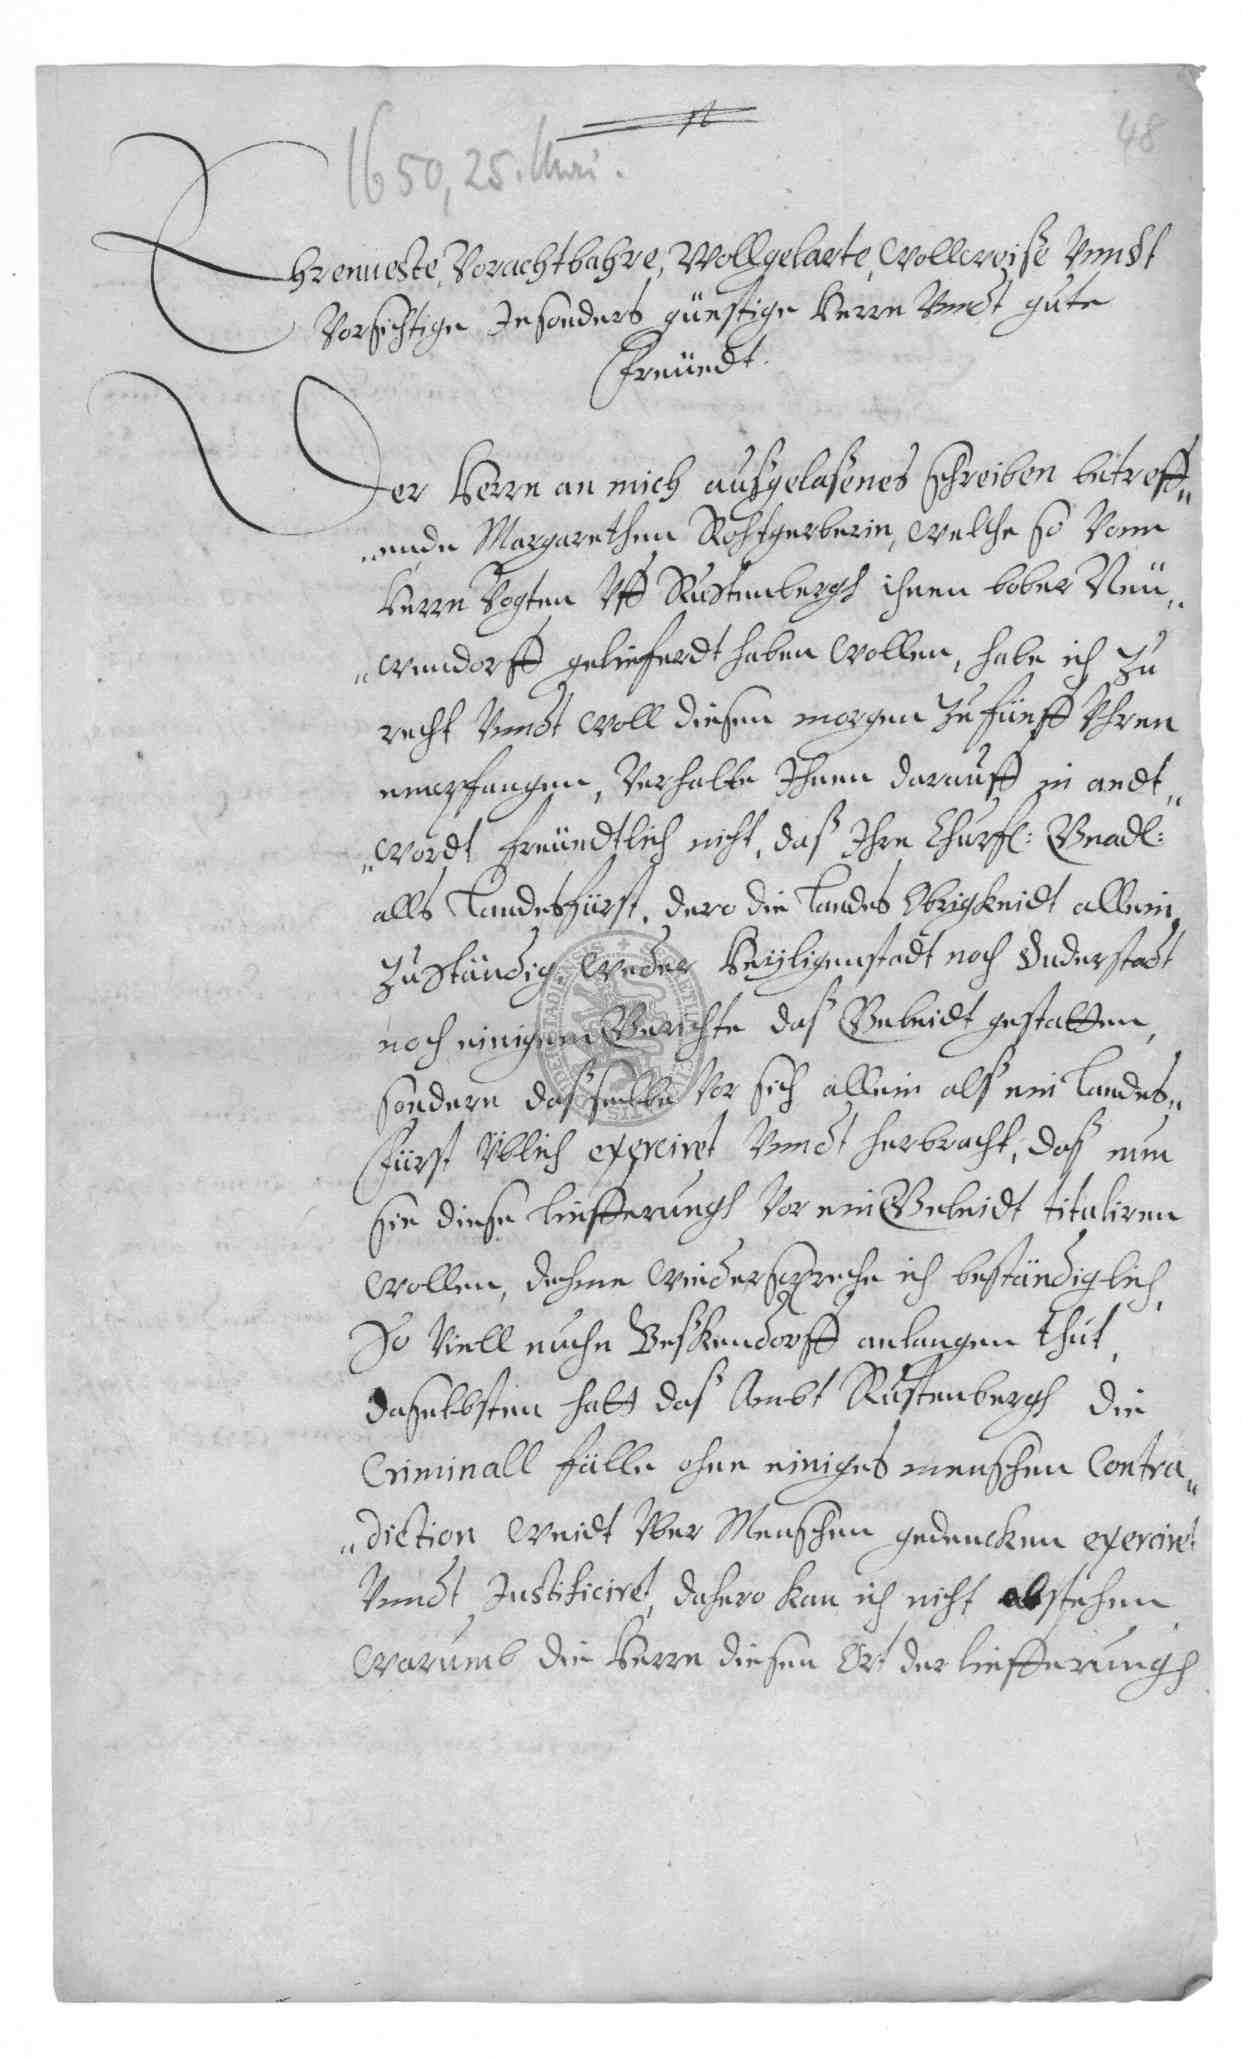 48
1650, 25. Mai.
Ehrenueste, Vorachtbahre, Wollgelarte, Wollweise Vnndt
Vorsichtige Insonders günstige Herrn Vnndt gute
Freündt.
Der Herrn an mich außgelaßenes schreiben betreff„
„ende Margarethen Rohtgerberin, welche so Vom
Herrn Vogten Vff Rustenbergh ihnen bober Neü„
„wendorff gelieferdt haben wollen, habe ich Zu
recht Vnndt woll diesen morgen Zu fünff Vhren
empfangen, Verhalte Ihnen darauff in andt„
„wordt freündtlich nicht, daß Ihre Churfl: Gnadl:
alls Landesfürst, dero die Landes Obrigkeidt allein
Zuständig, weder Heyligenstadt noch Duderstadt
noch einigem Gerichte daß Geleidt gestatten,
sondern dasselbe Vor sich allein alß ein Landes„
Fürst Vblich exerciret Vnndt herbracht, daß nun
sie diese Liefferungh Vor ein Geleidt tituliren
wollen, dehme wiederspreche ich beständiglich,
So Viell nuhn Beßkendorff anlangen thut,
daselbsten hatt daß Ambt Rustenbergh die
Criminall fälle ohne einiges menschen Contra„
„diction weidt Vber Menschen gedencken exerciret
Vnndt Justificiret, dahero kan ich nicht abstehen
warumb die Herrn diesen Ort der liefferungh